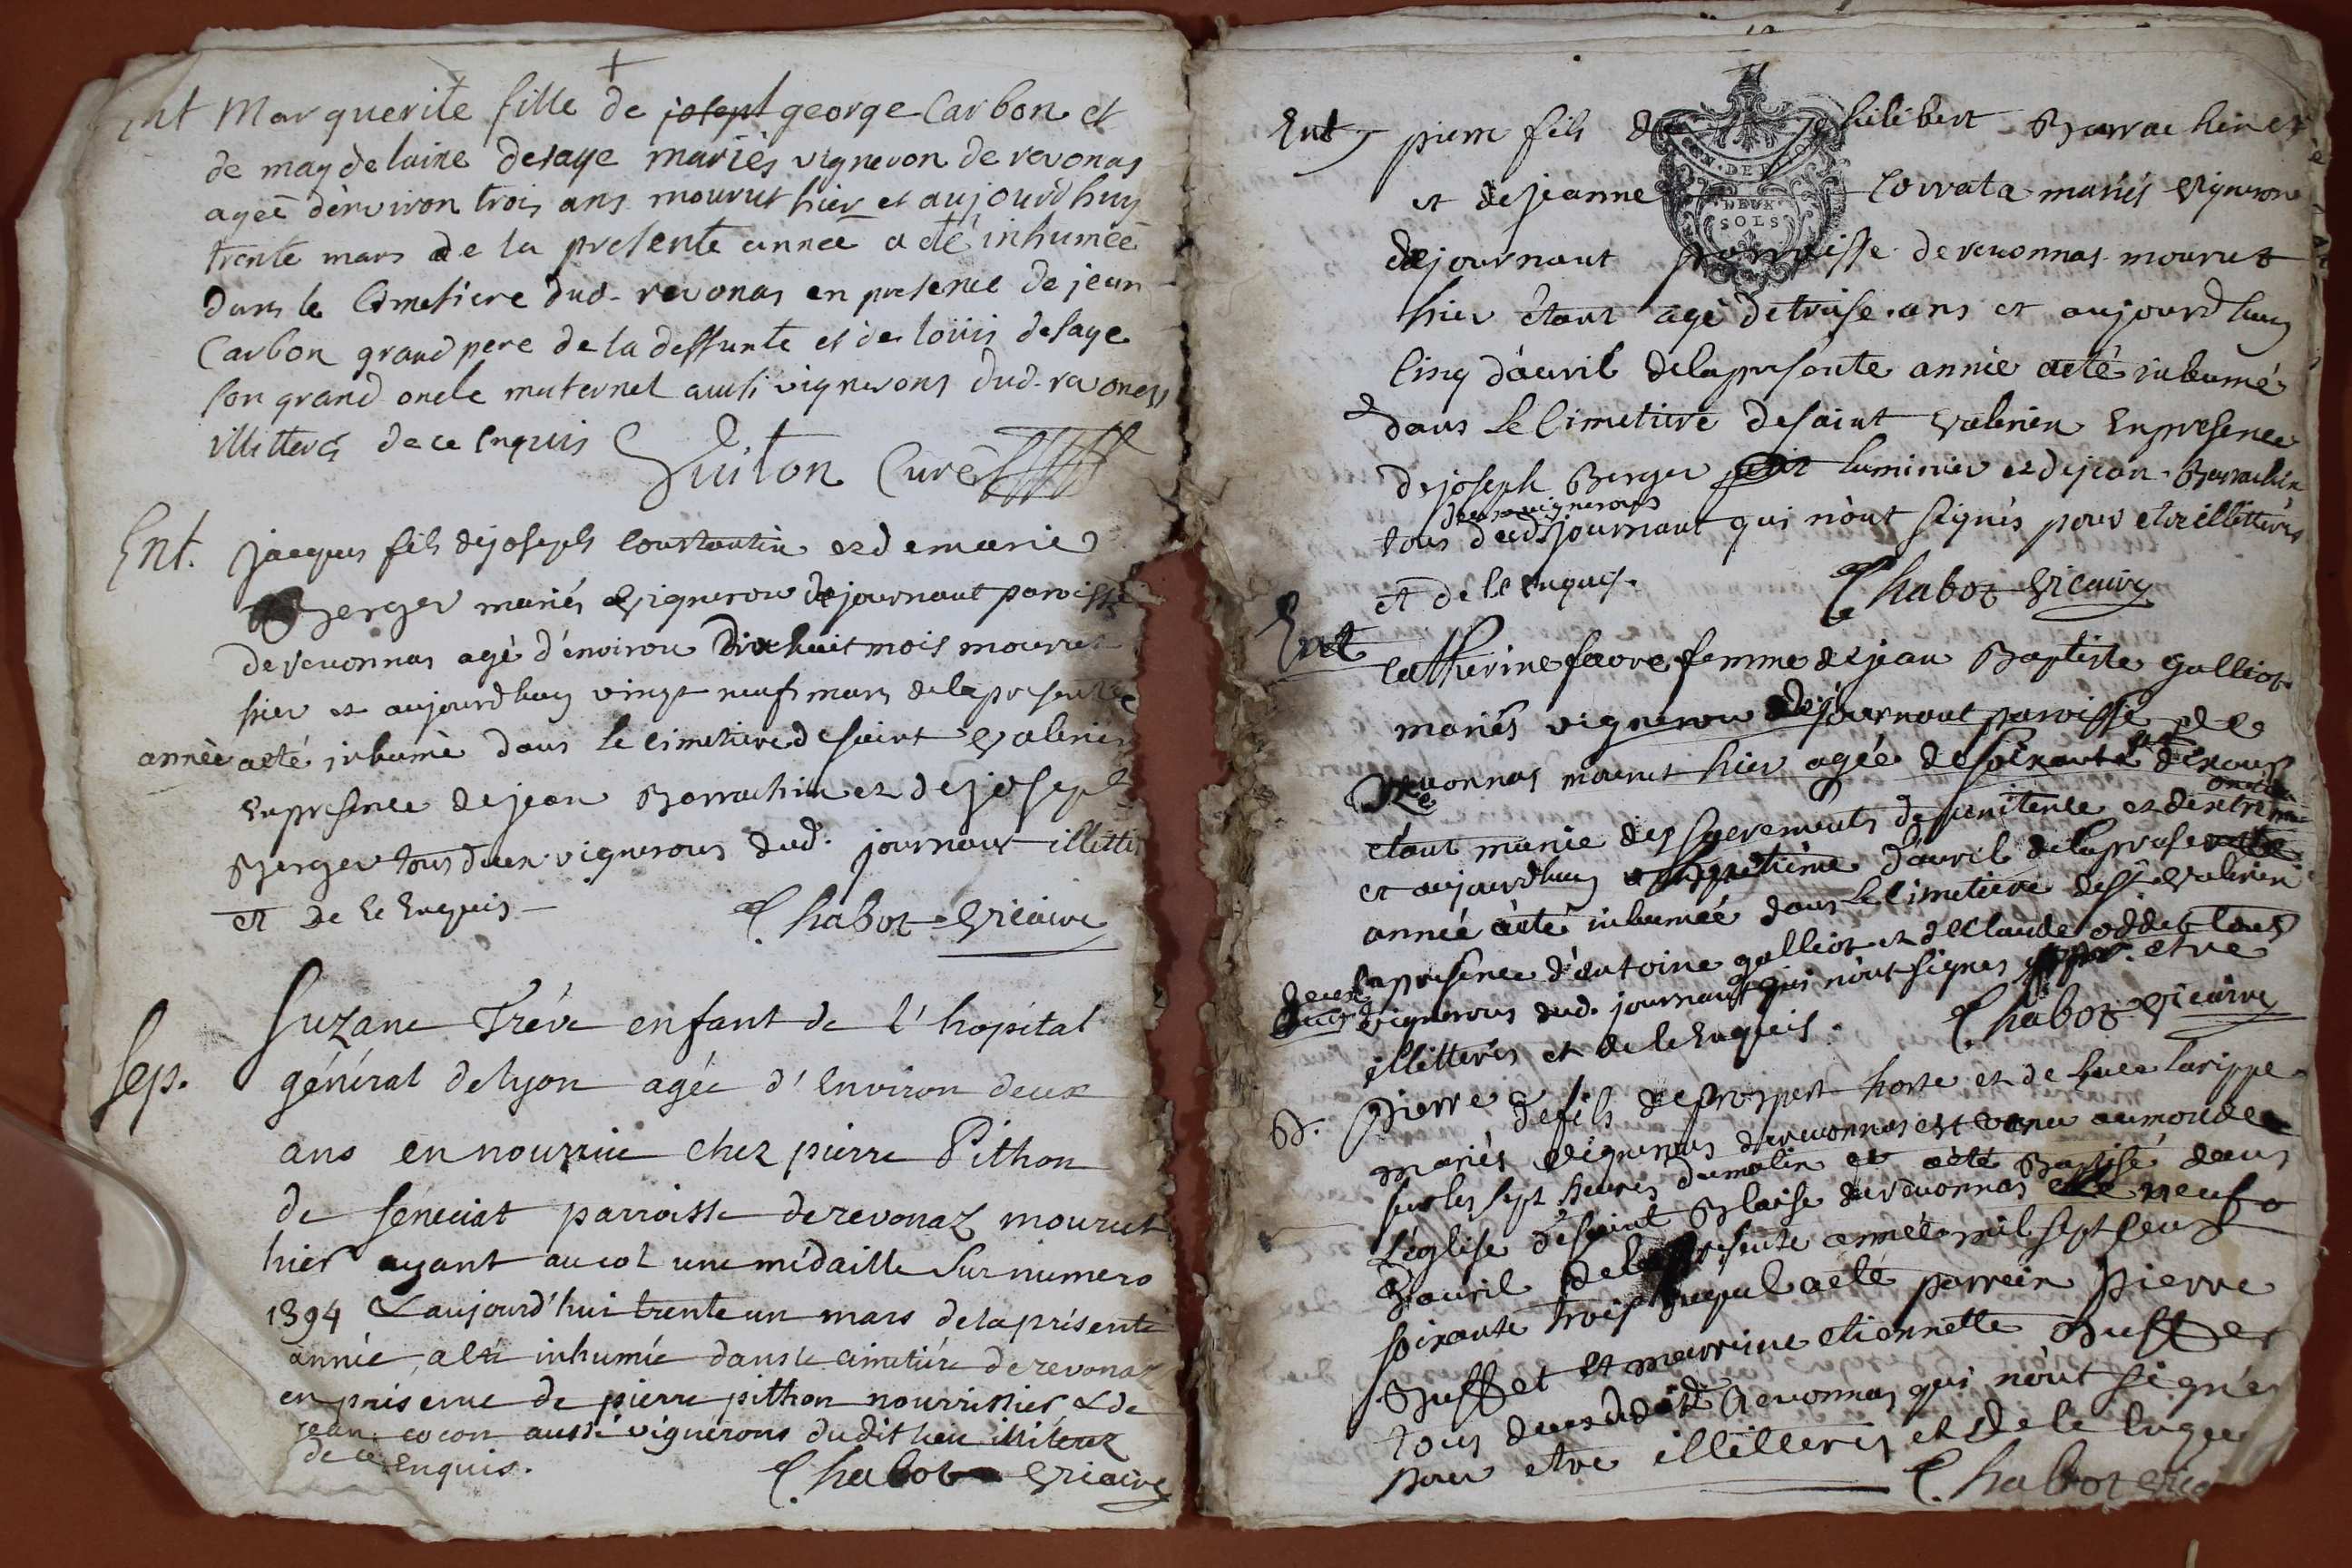 Ent Marguerite fille de joseph george Carbon et
de magdelaine desaye mariés vigneron de revonas
ageé d'environ trois ans mourut hier et aujourd huy
trente mars de la presente anneé a eté inhumeé
dans le Cimetiere dud. revonas en presence de jean
Carbon grand pere de la deffunte et de loüis desaye
son grand oncle maternel aussi vignerons dud. revonas
illitterés de ce enquis Guiton Curé
Ent. jacques fils de joseph constantin et de marie
Berger mariés vigneron de journant paroisse
de revonnas agé d'environ dix huit mois mourut
hier et aujourdhuy vingt neuf mars de la presente
année a eté inhumé dans le cimetiere de saint valerien
en presence de jean Barrachin et de joseph
Berger tous deux vignerons dud. journant illitterés
et de ce enquis Chabot vicaire
Sep. Suzane Tréve enfant de l'hopital
général de lyon agée d'environ deux
ans en nourrice chez pierre Pithon
de seneciat parroisse de revonaz mourut
hier ayant au col une médaille sur numero
1394 & aujourd'hui trente un mars de la présente
année, a été inhumée dans le cimetiére de revonaz
en présence de pierre pithon nourrissier & de
jean cocon aussi vignerons dudit lieu illiterez
de ce enquis. Chabot vicaire
DEUX
SOLS
Ent pierre fils de philibert Barrachin et
et de jeanne Corrata mariés vigneron
de journant parroisse de revonnas mourut
hier étant agé de treise ans et aujourdhuy
cinq d'avril de la presente année a eté inhumé
dans le cimetiere de saint valerien en presence
de joseph Berger luminier et de jean Barrachin
deux vignerons
tous dud. journant qui n'ont signés pour etre illitterés
et de ce enquis. Chabot vicaire
Ent Catherine favre femme de jean Baptiste galliot
mariés vigneron de journant paroisse de
Revonnas mourut hier agée de soixante dix ans
onction
etant munie des sacrements de penitence et d'extreme
et aujourdhuy d'avril de la presente
année a eté inhumée dans le cimetiere de st valerien
en presence d'antoine galliot et de claude oddet tous
deux vignerons dud. journant qui n'ont signés pr. etre
illitterés et de ce enquis. Chabot vicaire
B. Pierre fils de prospert horte et de luce larippe
mariés vignerons de revonnas est venu au monde
sur les sept heures du matin et a eté Baptisé dans
l'église de saint Blaise de revonnas le neuf
d'avril de la presente année mil sept cens
soixante trois duquel a eté parrein pierre
Buffet et marreine etiennette Buffet
tous deux dudit Revonnas qui n'ont signés
pour etre illitterés et de ce enquis
Chabot vicaire